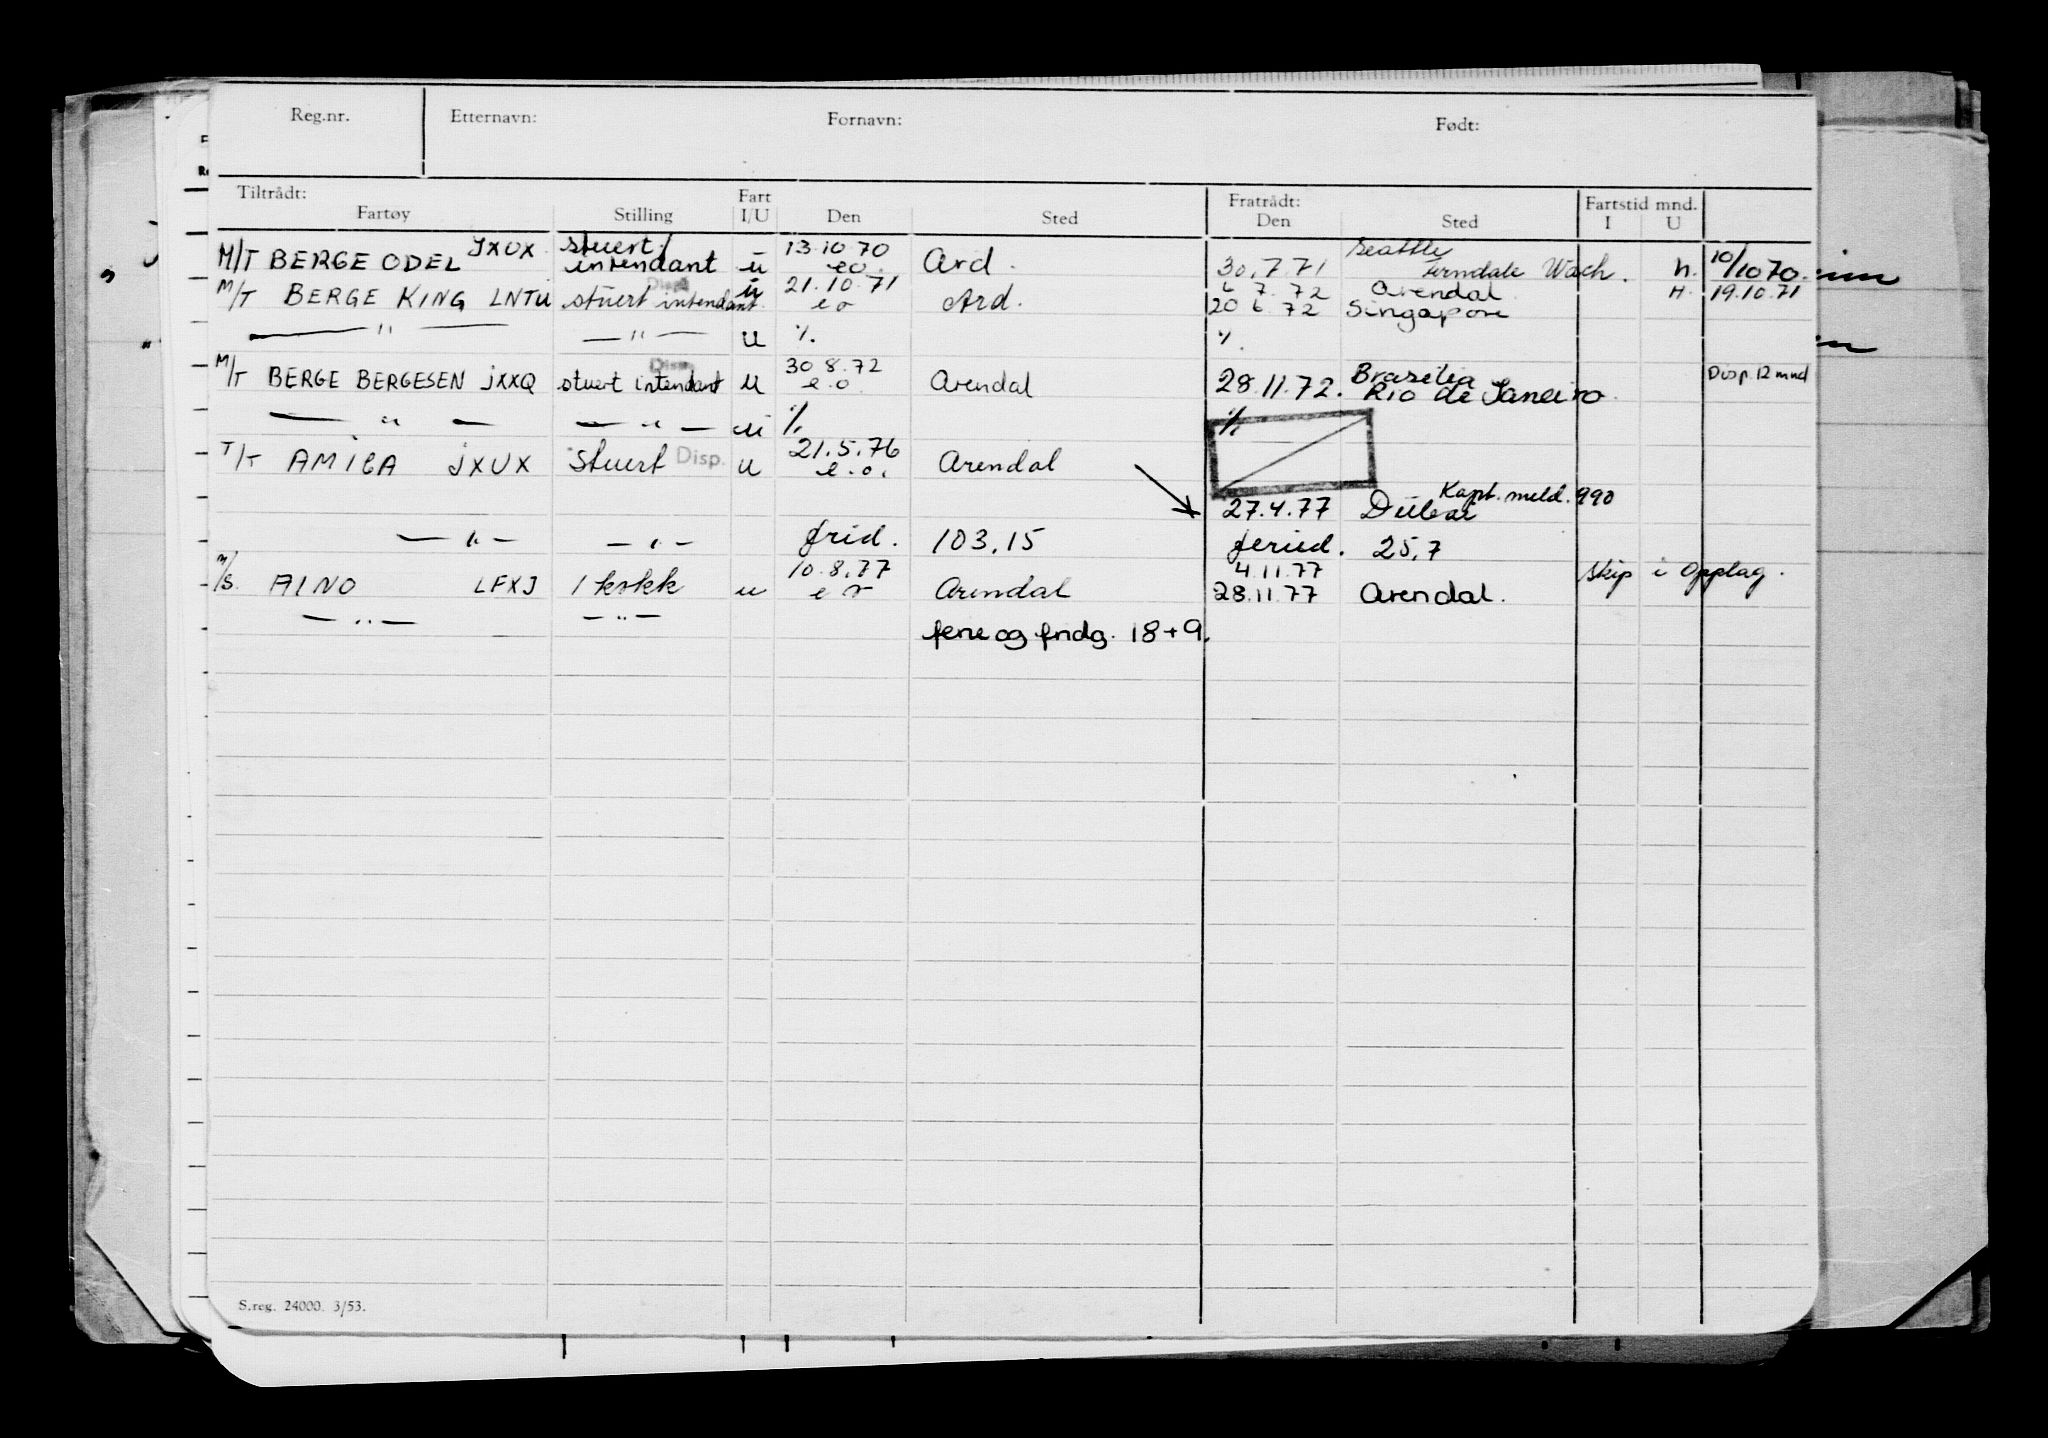 Reg.nr. Etternavn: Fornavn: Født:
Tiltrådt: Fart Fratrådt: Fartstid mnd.
Fartøy Stilling I/U Den Sted Den Sted I U
JXUX stuert/ 13.10.70 Seattle
M/T BERGE ODEL intendant u eo. Ard. 30.7.71 Ferndale Wach. h. 10/10 70.
Disp. 21.10.71 6 7.72 Arendal H. 19.10.71
M/T BERGE KING LNTU stuert intendant u eo Ard. 20 6.72 Singapore
— " — — " — u %. %.
Disp. 30 8.72 Brasilia Disp. 12 mnd
M/T BERGE BERGESEN JXXQ stuert intendant u e.o. Arendal 28.11.72. Rio de Janeiro
— " — — " — u %. %.
21.5.76
T/T AMICA JXUX Stuert Disp. u e.o. Arendal
Kapt. meld. 990
27.4.77 Dubai
— " — — " — frid. 103,15 feried. 25,7
10.8.77 4.11.77 Skip i Opplag.
M/S. AINO LFXJ 1 kokk u eo Arendal 28.11.77 Arendal.
— " — — " — ferie og fridg. 18+9.
S.reg. 24000. 3/53.